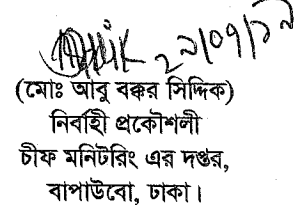 ২১/০৭/১৯
(মোঃ আবু বক্কর সিদ্দিক)
নির্বাহী প্রকৌশলী
চীফ মনিটরিং এর দপ্তর,
বাপাউবো, ঢাকা।